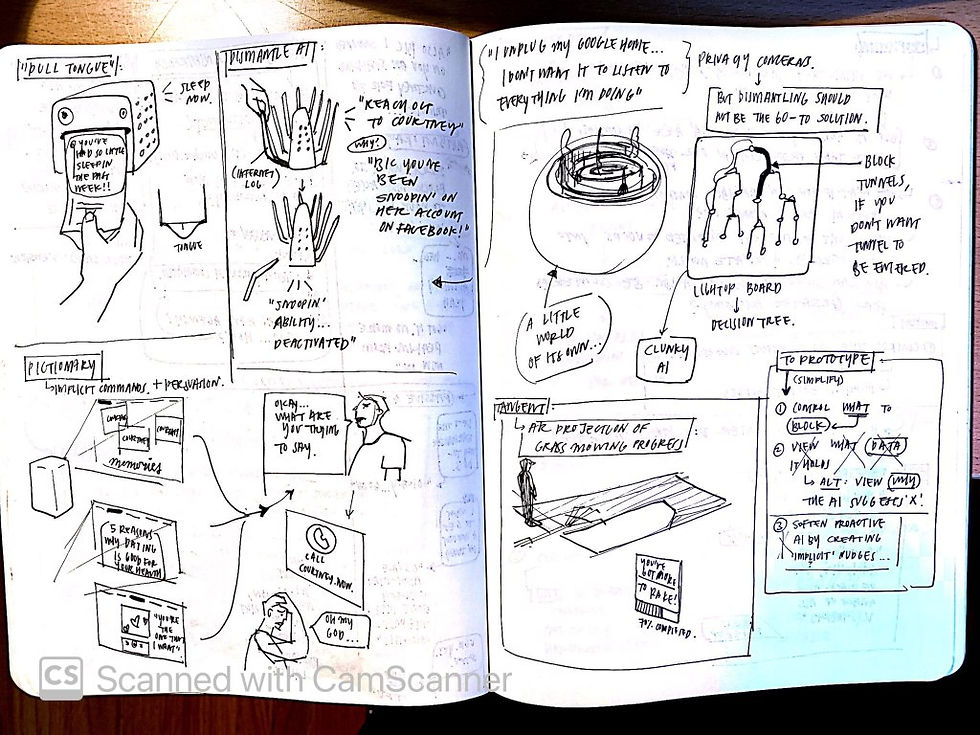 "PULL TONGUE":
SLEEP
NOW.
@ YOU'VE
HAD SO LITTLE
SLEEP IN
THE PAST
WEEK!!
TONGUE
DISMANTLE AI:
(INTERNET
LOG)
"REACH OUT
TO COURTNEY"
WHY?
"B/C YOU'VE
BEEN
SNOOPIN' ON
HER ACCOUNT
ON FACEBOOK!"
"SNOOPIN'
ABILITY...
DEACTIVATED"
PICTIONARY
IMPLICIT COMMANDS. + PERSUASION.
COURTNEY
COURTNEY
memories
5 REASONS
WHY DATING
IS GOOD FOR
YOUR HEALTH
"YOU'RE
THE
ONE THAT
I WANT"
OKAY...
WHAT ARE
YOU TRYING
TO SAY.
CALL
COURTNEY NOW.
OH MY
GOD...
"I UNPLUG MY GOOGLE HOME...
I DON'T WANT IT TO LISTEN TO
EVERYTHING I'M DOING"
PRIVACY CONCERNS.
BUT DISMANTLING SHOULD
NOT BE THE GO-TO SOLUTION.
BLOCK
TUNNELS,
IF YOU
DON'T WANT
TUNNEL TO
BE ENTERED.
LIGHTUP BOARD
DECISION TREE.
A LITTLE
WORLD
OF ITS OWN...
CLUNKY
AI
TANGENT:
AR PROJECTION OF
GRASS MOWING PROGRESS!
YOU'VE
GOT MORE
TO RAKE!
70% COMPLETED.
TO PROTOTYPE
(SIMPLIFY)
① CONTROL WHAT TO
BLOCK
② VIEW WHAT DATA
IT HOLDS
ALT: VIEW WHY
THE AI SUGGESTS 'X'.
③ SOFTEN PROACTIVE
AI BY CREATING
'IMPLICIT' NUDGES...
CS Scanned with CamScanner